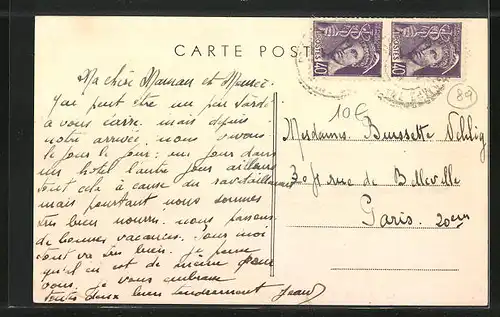 CARTE POST
POSTES
40
POSTES
40
10€
89
Ma chère Maman et Mémée.
J'ai peut être un peu tardé
à vous écrire. mais depuis
notre arrivée. nous vivons
le jour le jour. un jour dans
un hotel l'autre jour ailleurs
tout cela à cause du ravitaillement
mais pourttant nous sommes
très bien nourri. nous passons
de bonnes vacances. Pour moi
tout va très bien. Je pense
qu'il en est de même pour
vous. je vous embrasse
toutes deux bien tendrement Jean
Mesdames. Bussette
rue de Belleville
Paris. 20em